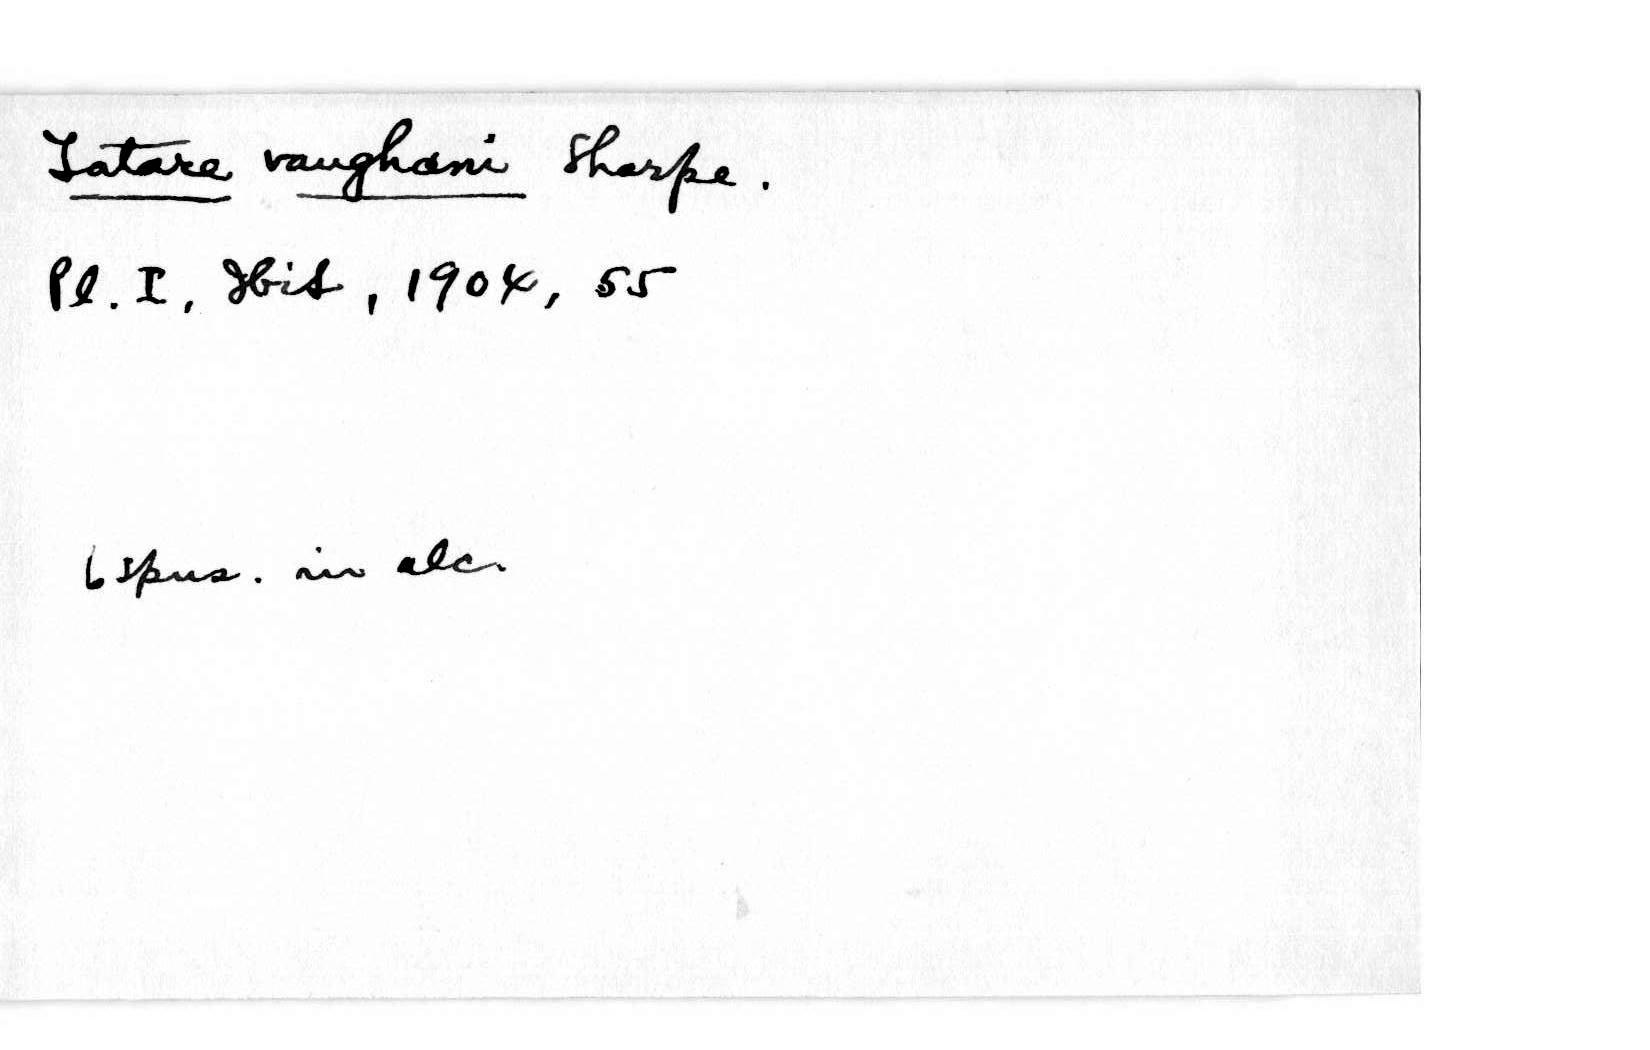 Tatare vaughani Sharpe.
Pl. I, Ibis, 1904, 55
6 spns. in alc.